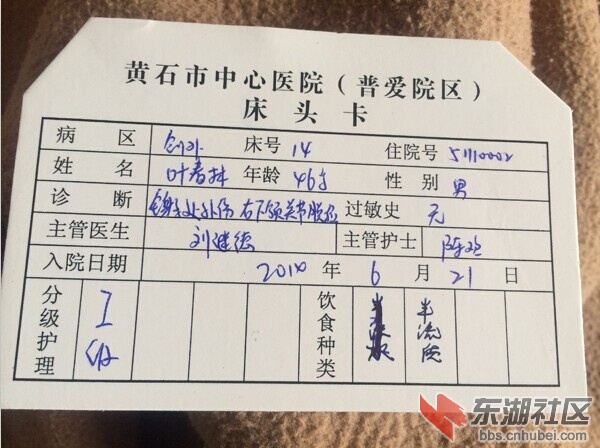 黄石市中心医院（普爱院区）
床头卡
病区 创外 床号 14 住院号 51110002
姓名 叶春林 年龄 46岁 性别 男
诊断 外伤 右下颌关节脱位 过敏史 无
主管医生 刘建德 主管护士 陈
入院日期 2010 年 6 月 21 日
分级护理 I级 饮食种类 半流质
东湖社区
bbs.cnhubei.com